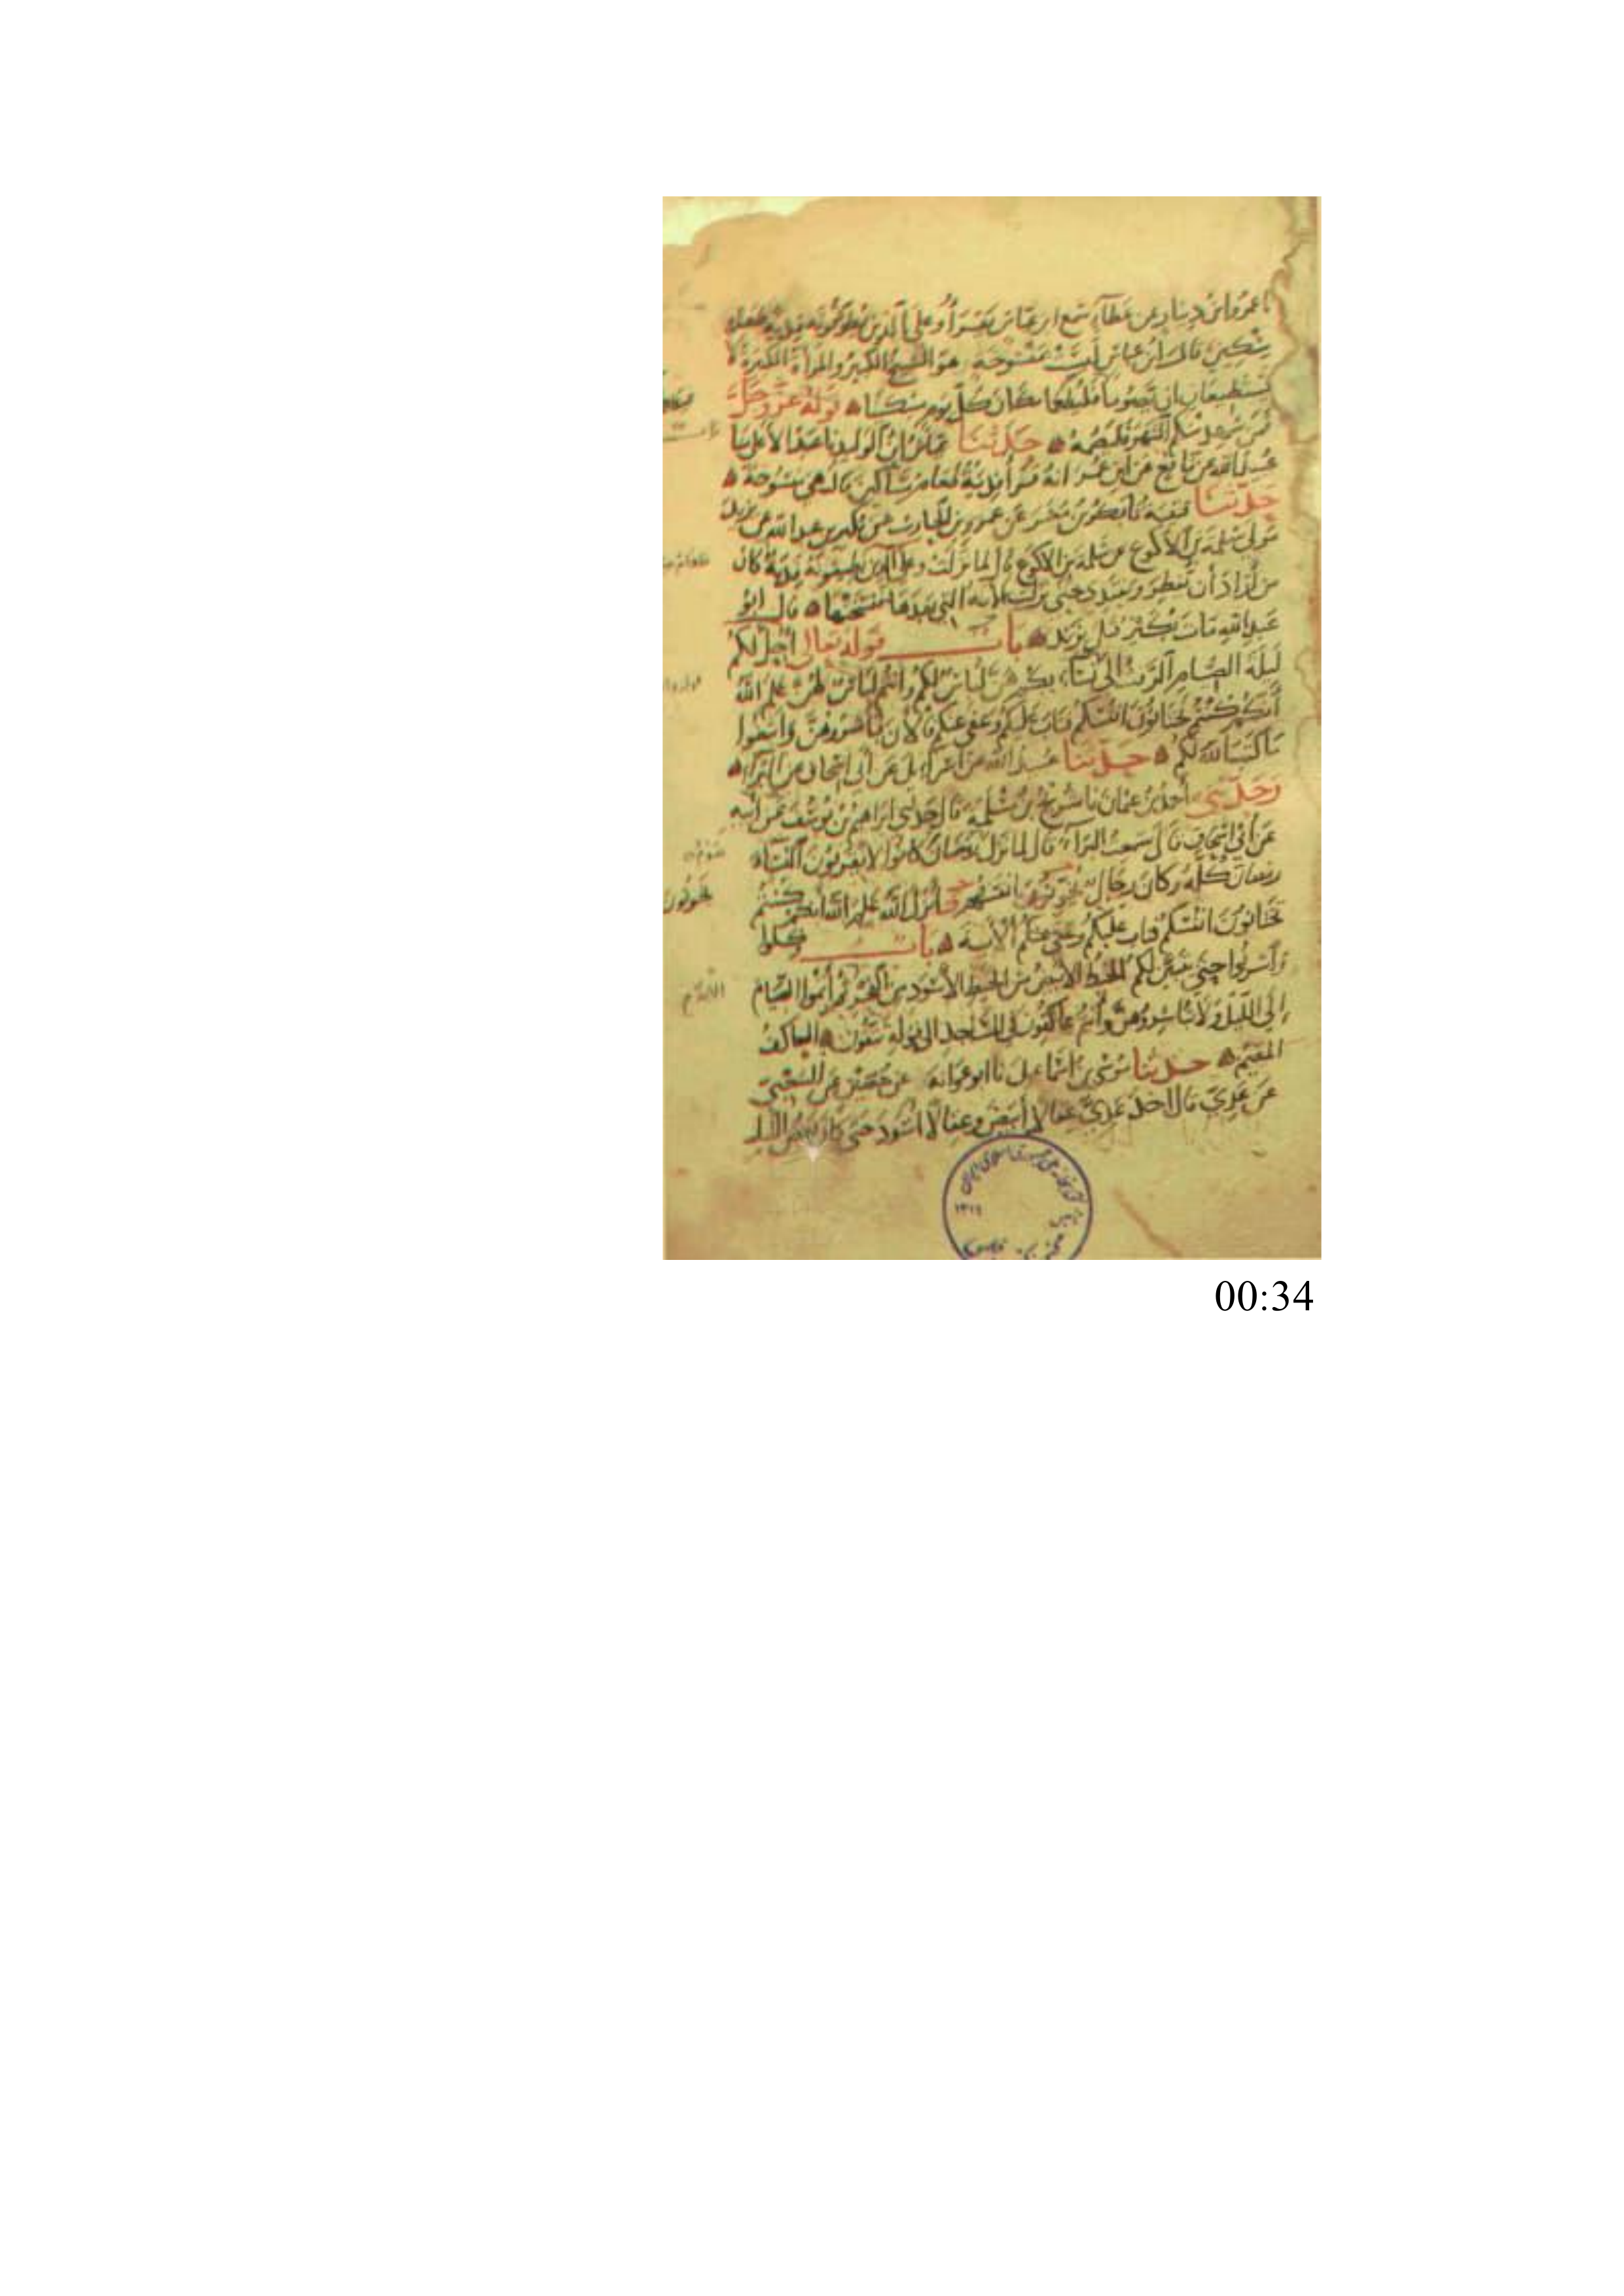 نا عمرو ابن دينار عن عطاء سمع ابن عباس يقرأ وعلى الذين يطوقونه فدية طعام
مسكين قال ابن عباس ليست بمنسوخة هو الشيخ الكبير والمرأة الكبيرة لا
يستطيعان ان يصوما فليطعما مكان كل يوم مسكينا قوله عز وجل
فمن شهد منكم الشهر فليصمه حدثنا عياش ابن الوليد نا عبد الأعلى نا
عبيد الله عن نافع عن ابن عمر انه قرأ فدية طعام مساكين قال هي منسوخة
حدثنا قتيبة نا بكر بن مضر عن عمرو بن الحارث عن بكير بن عبد الله عن يزيد
مولى سلمة بن الأكوع عن سلمة بن الاكوع قال لما نزلت وعلى الذين يطيقونه فدية كان
من أراد أن يفطر ويفتدي حتى نزلت الآية التي بعدها فنسختها قال ابو
عبد الله مات بكير قبل يزيد باب قوله تعالى أحل لكم
ليلة الصيام الرفث الى نسائكم هن لباس لكم وانتم لباس لهن علم الله
أنكم كنتم تختانون انفسكم فتاب عليكم وعفى عنكم فالآن باشروهن وابتغوا
ما كتب الله لكم حدثنا عبيد الله عن اسرائيل عن أبي إسحاق عن البراء
وحدثني أحمد بن عثمان نا شريح بن مسلمة قال حدثني ابراهيم بن يوسف عن أبيه
عن أبي إسحاق قال سمعت البراء قال لما نزل رمضان كانوا لا يقربون النساء
رمضان كله وكان رجال يخونون انفسهم فأنزل الله علم الله أنكم كنتم
تختانون انفسكم فتاب عليكم وعفى عنكم الآية باب وكلوا
واشربوا حتى يتبين لكم الخيط الأبيض من الخيط الأسود من الفجر ثم أتموا الصيام
إلى الليل ولا تباشروهن وأنتم عاكفون في المساجد الى قوله يتقون العاكف
المقيم حدثنا موسى بن اسماعيل نا ابو عوانة عن حصين عن الشعبي
عن عدي قال اخذ عدي عقالا أبيض وعقالا اسود حتى كان بعض الليل
صوم
يخونون
00:34